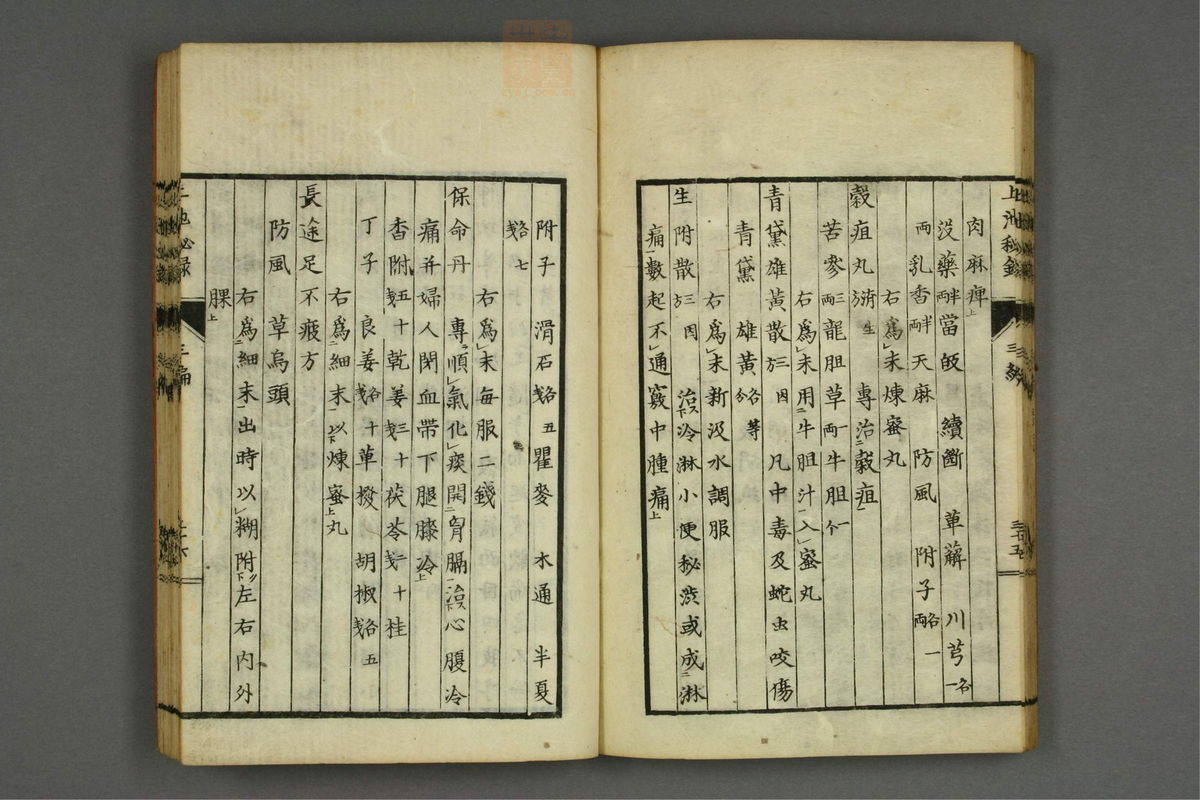 上池秘録 三編 三百五
肉麻痺
没薬半両 當皈 續斷 萆薢 川芎各一
両 乳香半両 天麻 防風 附子各一両
右爲末煉蜜丸
穀疸丸 専治穀疸
苦參三両 龍胆草一両 牛胆一个
右爲末用牛胆汁入蜜丸
青黛雄黄散 凡中毒及蛇虫咬傷
青黛 雄黄各等分
右爲末新汲水調服
生附散 治冷淋小便秘渋或成淋
痛數起不通竅中腫痛
附子 滑石各五戔 瞿麥 木通 半夏
各七戔
右爲末毎服二錢
保命丹 専順氣化痰開胷膈治心腹冷
痛并婦人閉血帯下腿膝冷
香附五十戔 乾姜三十戔 茯苓二十戔 桂
丁子 良姜各十戔 蓽撥 胡椒各五戔
右爲細末以煉蜜丸
長途足不疲方
防風 草烏頭
右爲細末出時以糊附左右内外
腂
上池秘録 三編